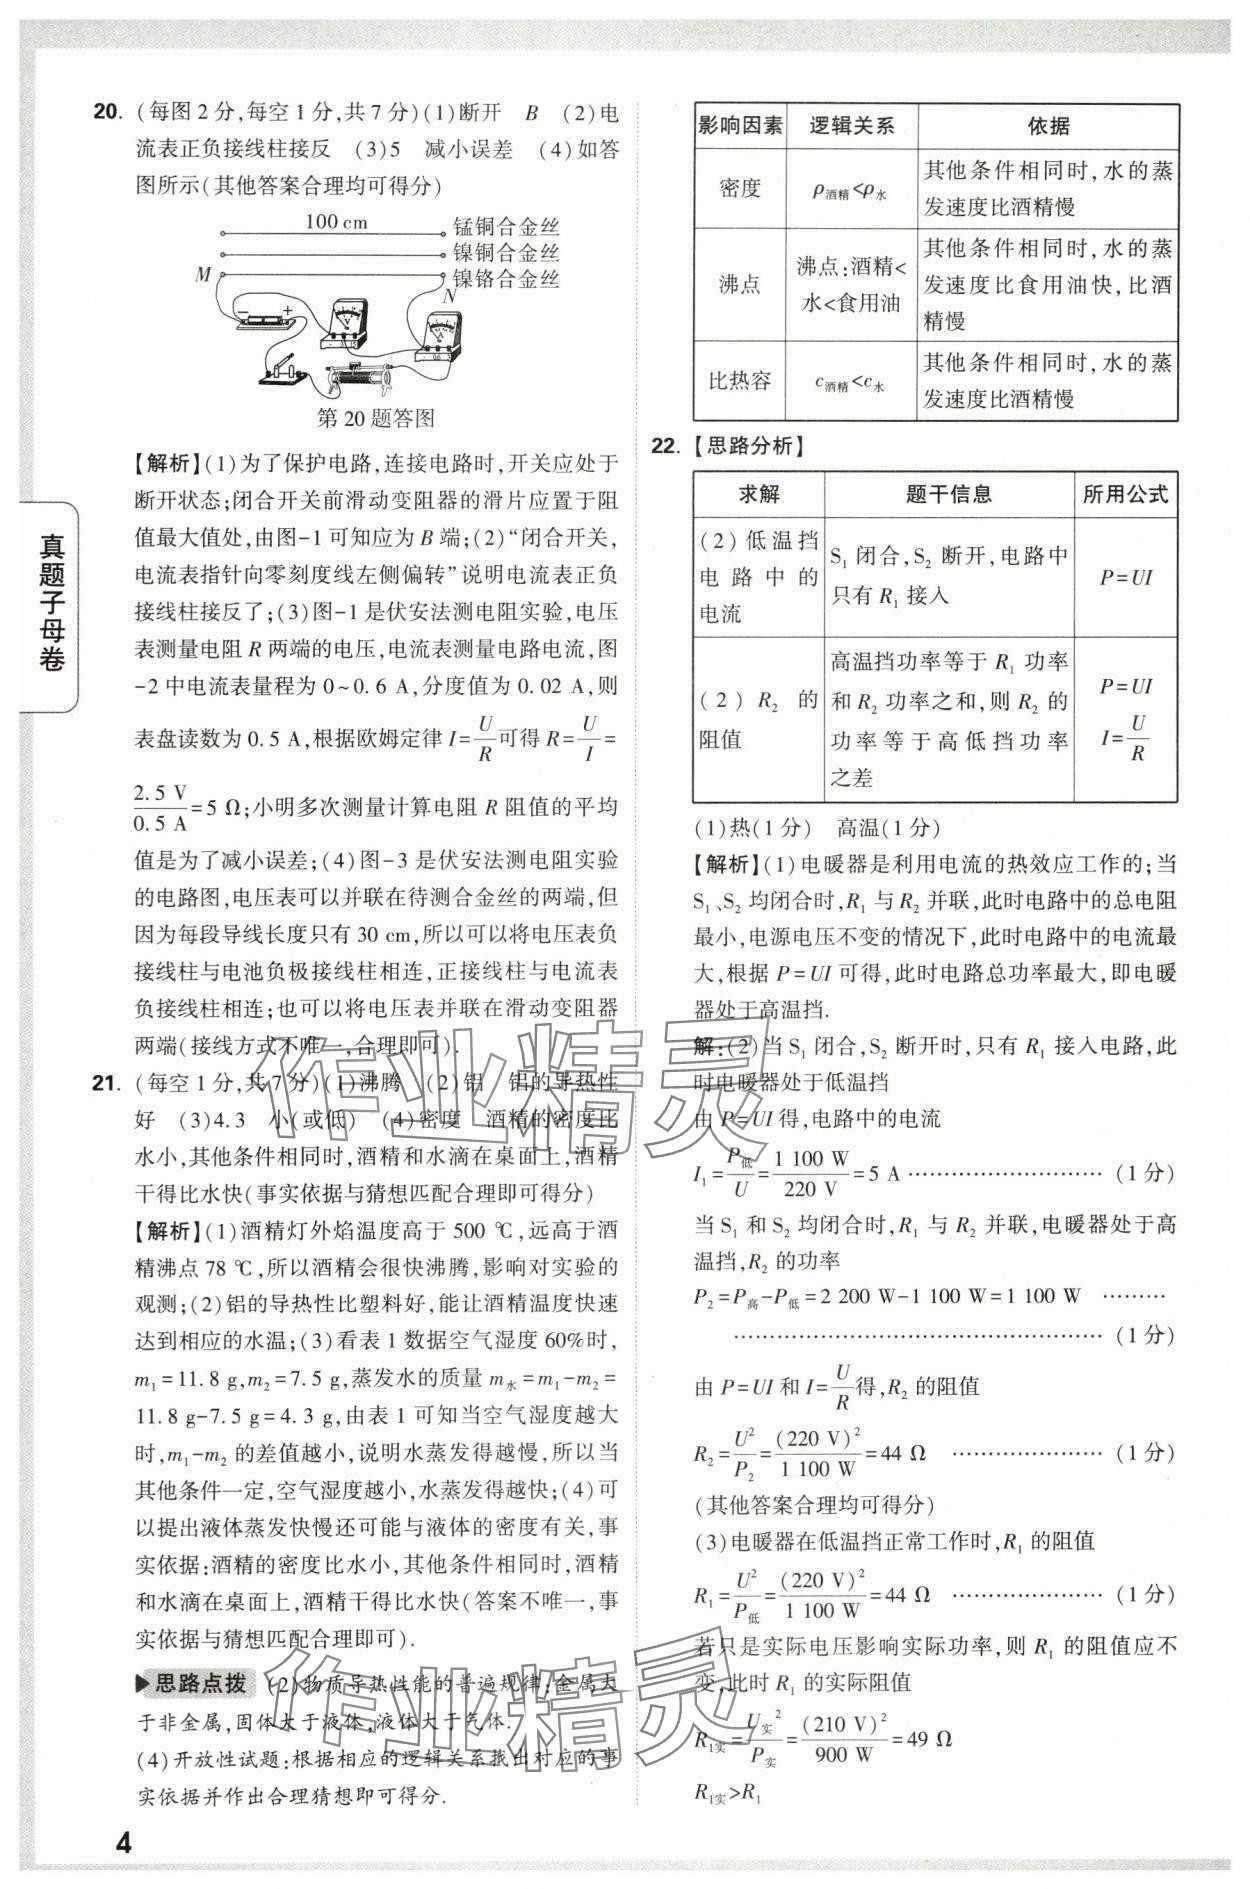 20. (每图2分,每空1分,共7分)(1)断开 B (2)电
流表正负接线柱接反 (3)5 减小误差 (4)如答
图所示(其他答案合理均可得分)
100 cm
锰铜合金丝
镍铜合金丝
M
镍铬合金丝
N
第20题答图
【解析】(1)为了保护电路,连接电路时,开关应处于
断开状态;闭合开关前滑动变阻器的滑片应置于阻
值最大值处,由图-1可知应为B端;(2)“闭合开关,
电流表指针向零刻度线左侧偏转”说明电流表正负
接线柱接反了;(3)图-1是伏安法测电阻实验,电压
表测量电阻R两端的电压,电流表测量电路电流,图
-2中电流表量程为0~0.6 A,分度值为0.02 A,则
表盘读数为0.5 A,根据欧姆定律I=U/R可得R=U/I=
2.5 V/0.5 A=5 Ω;小明多次测量计算电阻R阻值的平均
值是为了减小误差;(4)图-3是伏安法测电阻实验
的电路图,电压表可以并联在待测合金丝的两端,但
因为每段导线长度只有30 cm,所以可以将电压表负
接线柱与电池负极接线柱相连,正接线柱与电流表
负接线柱相连;也可以将电压表并联在滑动变阻器
两端(接线方式不唯一,合理即可).
21. (每空1分,共7分)(1)沸腾 (2)铝 铝的导热性
好 (3)4.3 小(或低) (4)密度 酒精的密度比
水小,其他条件相同时,酒精和水滴在桌面上,酒精
干得比水快(事实依据与猜想匹配合理即可得分)
【解析】(1)酒精灯外焰温度高于500 ℃,远高于酒
精沸点78 ℃,所以酒精会很快沸腾,影响对实验的
观测;(2)铝的导热性比塑料好,能让酒精温度快速
达到相应的水温;(3)看表1数据空气湿度60%时,
m₁=11.8 g,m₂=7.5 g,蒸发水的质量m水=m₁-m₂=
11.8 g-7.5 g=4.3 g,由表1可知当空气湿度越大
时,m₁-m₂的差值越小,说明水蒸发得越慢,所以当
其他条件一定,空气湿度越小,水蒸发得越快;(4)可
以提出液体蒸发快慢还可能与液体的密度有关,事
实依据:酒精的密度比水小,其他条件相同时,酒精
和水滴在桌面上,酒精干得比水快(答案不唯一,事
实依据与猜想匹配合理即可).
思路点拨 (2)物质导热性能的普遍规律:金属大
于非金属,固体大于液体,液体大于气体.
(4)开放性试题:根据相应的逻辑关系找出对应的事
实依据并作出合理猜想即可得分.
影响因素 逻辑关系 依据
密度 ρ酒精<ρ水 其他条件相同时,水的蒸
发速度比酒精慢
沸点 沸点:酒精<
水<食用油 其他条件相同时,水的蒸
发速度比食用油快,比酒
精慢
比热容 c酒精<c水 其他条件相同时,水的蒸
发速度比酒精慢
22. 【思路分析】
求解 题干信息 所用公式
(2)低温挡
电路中的
电流 S₁闭合,S₂断开,电路中
只有R₁接入 P=UI
(2)R₂的
阻值 高温挡功率等于R₁功率
和R₂功率之和,则R₂的
功率等于高低挡功率
之差 P=UI
I=U/R
(1)热(1分) 高温(1分)
【解析】(1)电暖器是利用电流的热效应工作的;当
S₁、S₂均闭合时,R₁与R₂并联,此时电路中的总电阻
最小,电源电压不变的情况下,此时电路中的电流最
大,根据P=UI可得,此时电路总功率最大,即电暖
器处于高温挡.
解:(2)当S₁闭合,S₂断开时,只有R₁接入电路,此
时电暖器处于低温挡
由P=UI得,电路中的电流
I₁=P低/U=1 100 W/220 V=5 A ………………………(1分)
当S₁和S₂均闭合时,R₁与R₂并联,电暖器处于高
温挡,R₂的功率
P₂=P高-P低=2 200 W-1 100 W=1 100 W ………
……………………………………………(1分)
由P=UI和I=U/R得,R₂的阻值
R₂=U²/P₂=(220 V)²/1 100 W=44 Ω …………………(1分)
(其他答案合理均可得分)
(3)电暖器在低温挡正常工作时,R₁的阻值
R₁=U²/P低=(220 V)²/1 100 W=44 Ω …………………(1分)
若只是实际电压影响实际功率,则R₁的阻值应不
变,此时R₁的实际阻值
R₁实=U实²/P实=(210 V)²/900 W=49 Ω
R₁实>R₁
真题子母卷
4
作业精灵
作业精灵